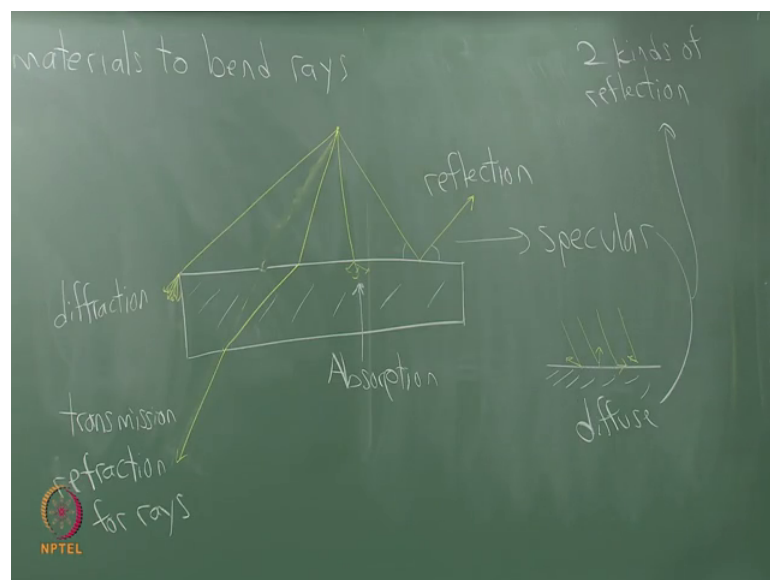 materials to bend rays
2 kinds of
reflection
reflection
specular
diffraction
Absorption
diffuse
transmission
refraction
for rays
NPTEL